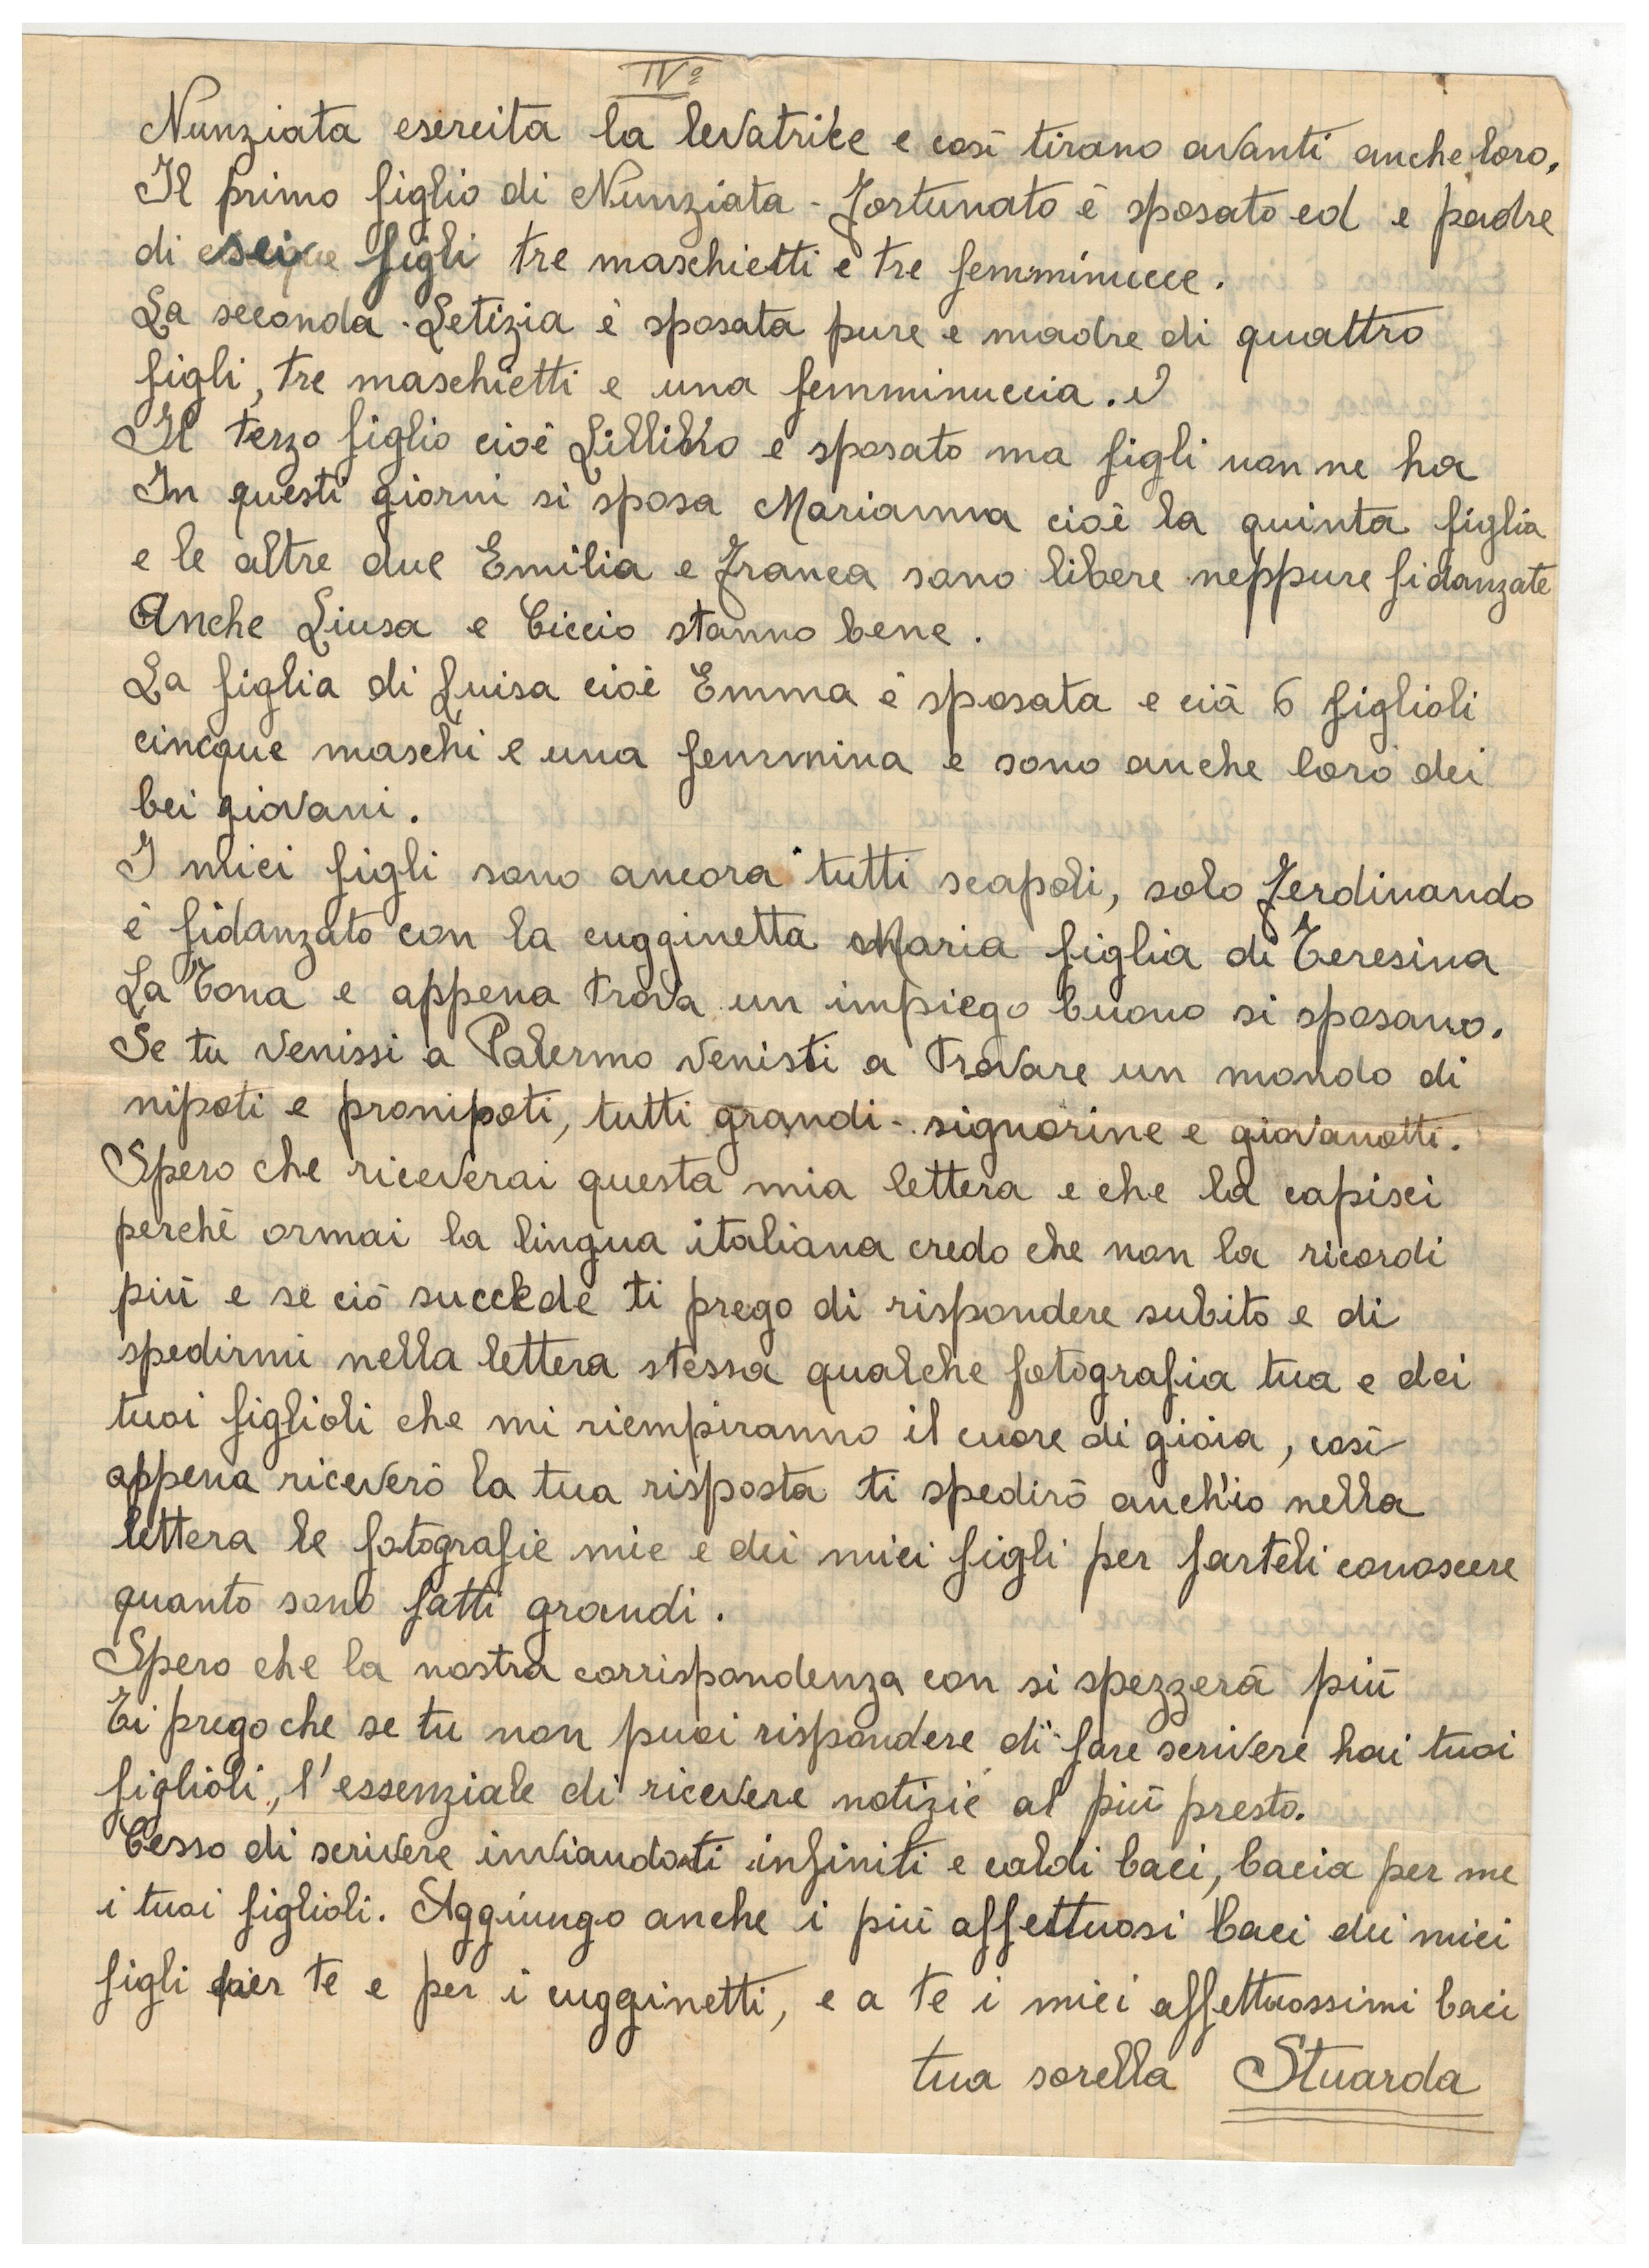 IVº
Nunziata esercita la levatrice e così tirano avanti anche loro.
Il primo figlio di Nunziata - Fortunato è sposato ed e padre
di sei figli tre maschietti e tre femminucce.
La seconda - Letizia è sposata pure e madre di quattro
figli, tre maschietti e una femminuccia.
Il terzo figlio cioè e sposato ma figli non ne ha
In questi giorni si sposa Marianna cioè la quinta figlia
e le altre due Emilia e Franca sono libere neppure fidanzate
Anche Liusa e Ciccio stanno bene.
La figlia di Luisa cioè Emma è sposata e cià 6 figlioli
cincque maschi e una femmina e sono anche loro dei
bei giovani.
I miei figli sono ancora tutti scapoli, solo Ferdinando
è fidanzato con la cugginetta Maria figlia di Teresina
La Tona e appena trova un impiego buono si sposano.
Se tu venissi a Palermo venisti a trovare un mondo di
nipoti e pronipoti, tutti grandi - signorine e giovanotti.
Spero che riceverai questa mia lettera e che la capisci
perchè ormai la lingua italiana credo che non la ricordi
più e se ciò succede ti prego di rispondere subito e di
spedirmi nella lettera stessa qualche fotografia tua e dei
tuoi figlioli che mi riempiranno il cuore di gioia, così
appena riceverò la tua risposta ti spedirò anch'io nella
lettera le fotografie mie e dei miei figli per farteli conoscere
quanto sono fatti grandi.
Spero che la nostra corrispondenza con si spezzerà più
Ti prego che se tu non puoi rispondere di fare scrivere hai tuoi
figlioli, l'essenziale di ricevere notizie al più presto.
Cesso di scrivere inviandoti infiniti e caldi baci, bacia per me
i tuoi figlioli. Aggiungo anche i più affettuosi baci dei miei
figli per te e per i cugginetti, e a te i miei affettuossimi baci
tua sorella Stuarda